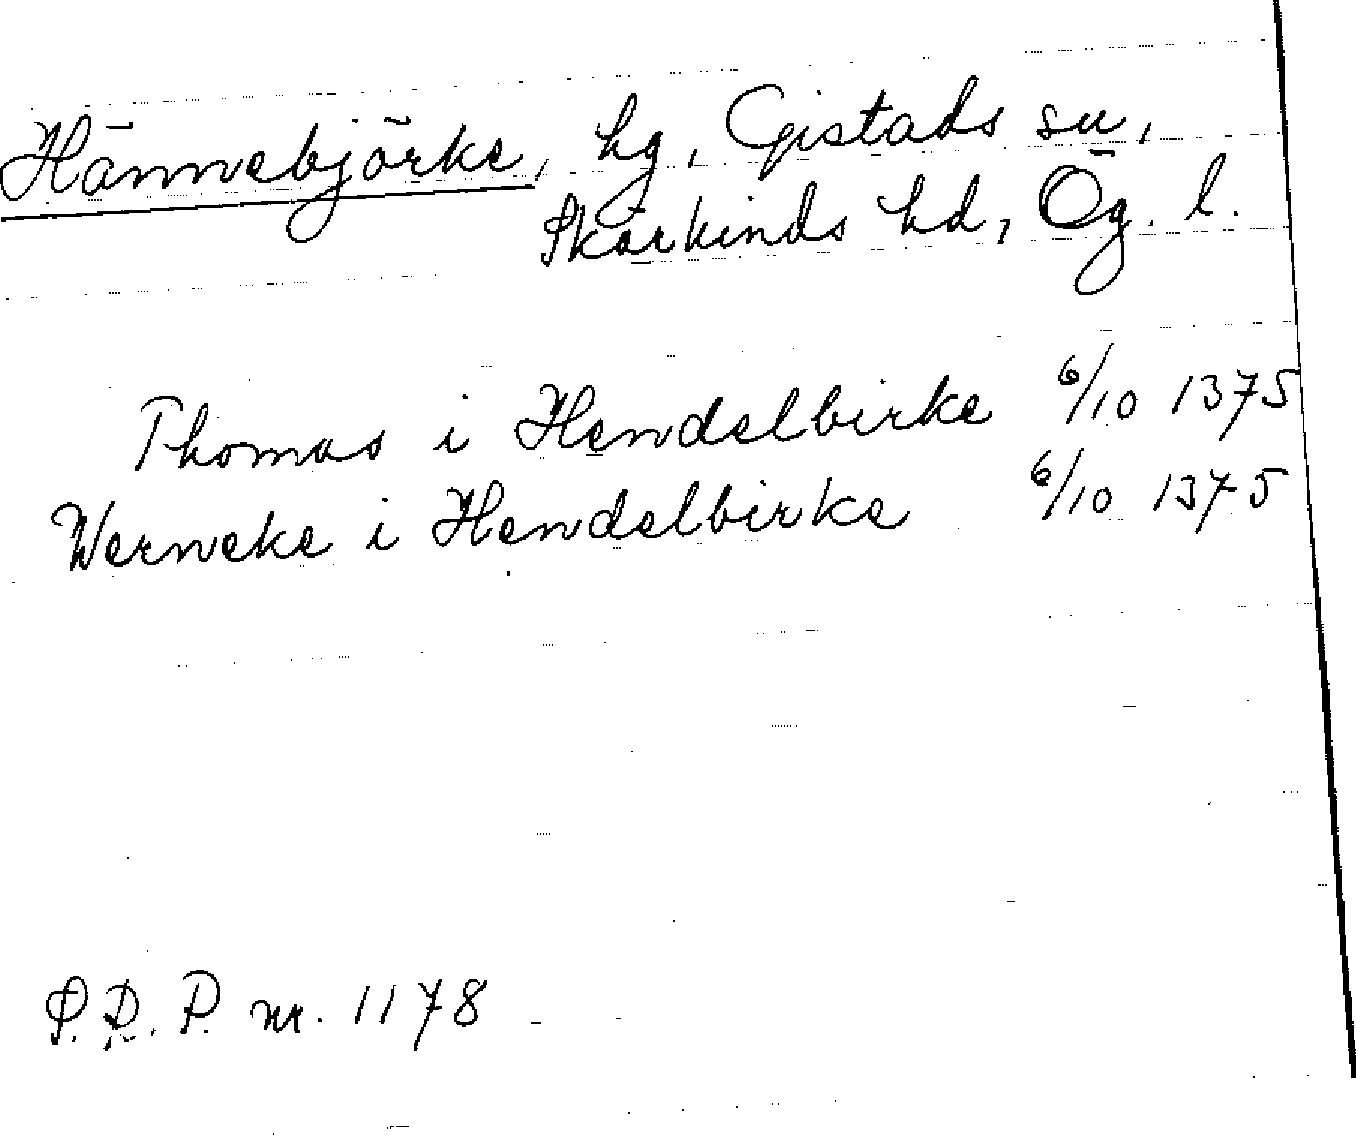 Hännebjörke, hg, Gistads sn,
Skärkinds hd, Ög. l.
Thomas i Hendelbirke 6/10 1375
Werneke i Hendelbirke 6/10 1375
S.R.P. nr. 1178